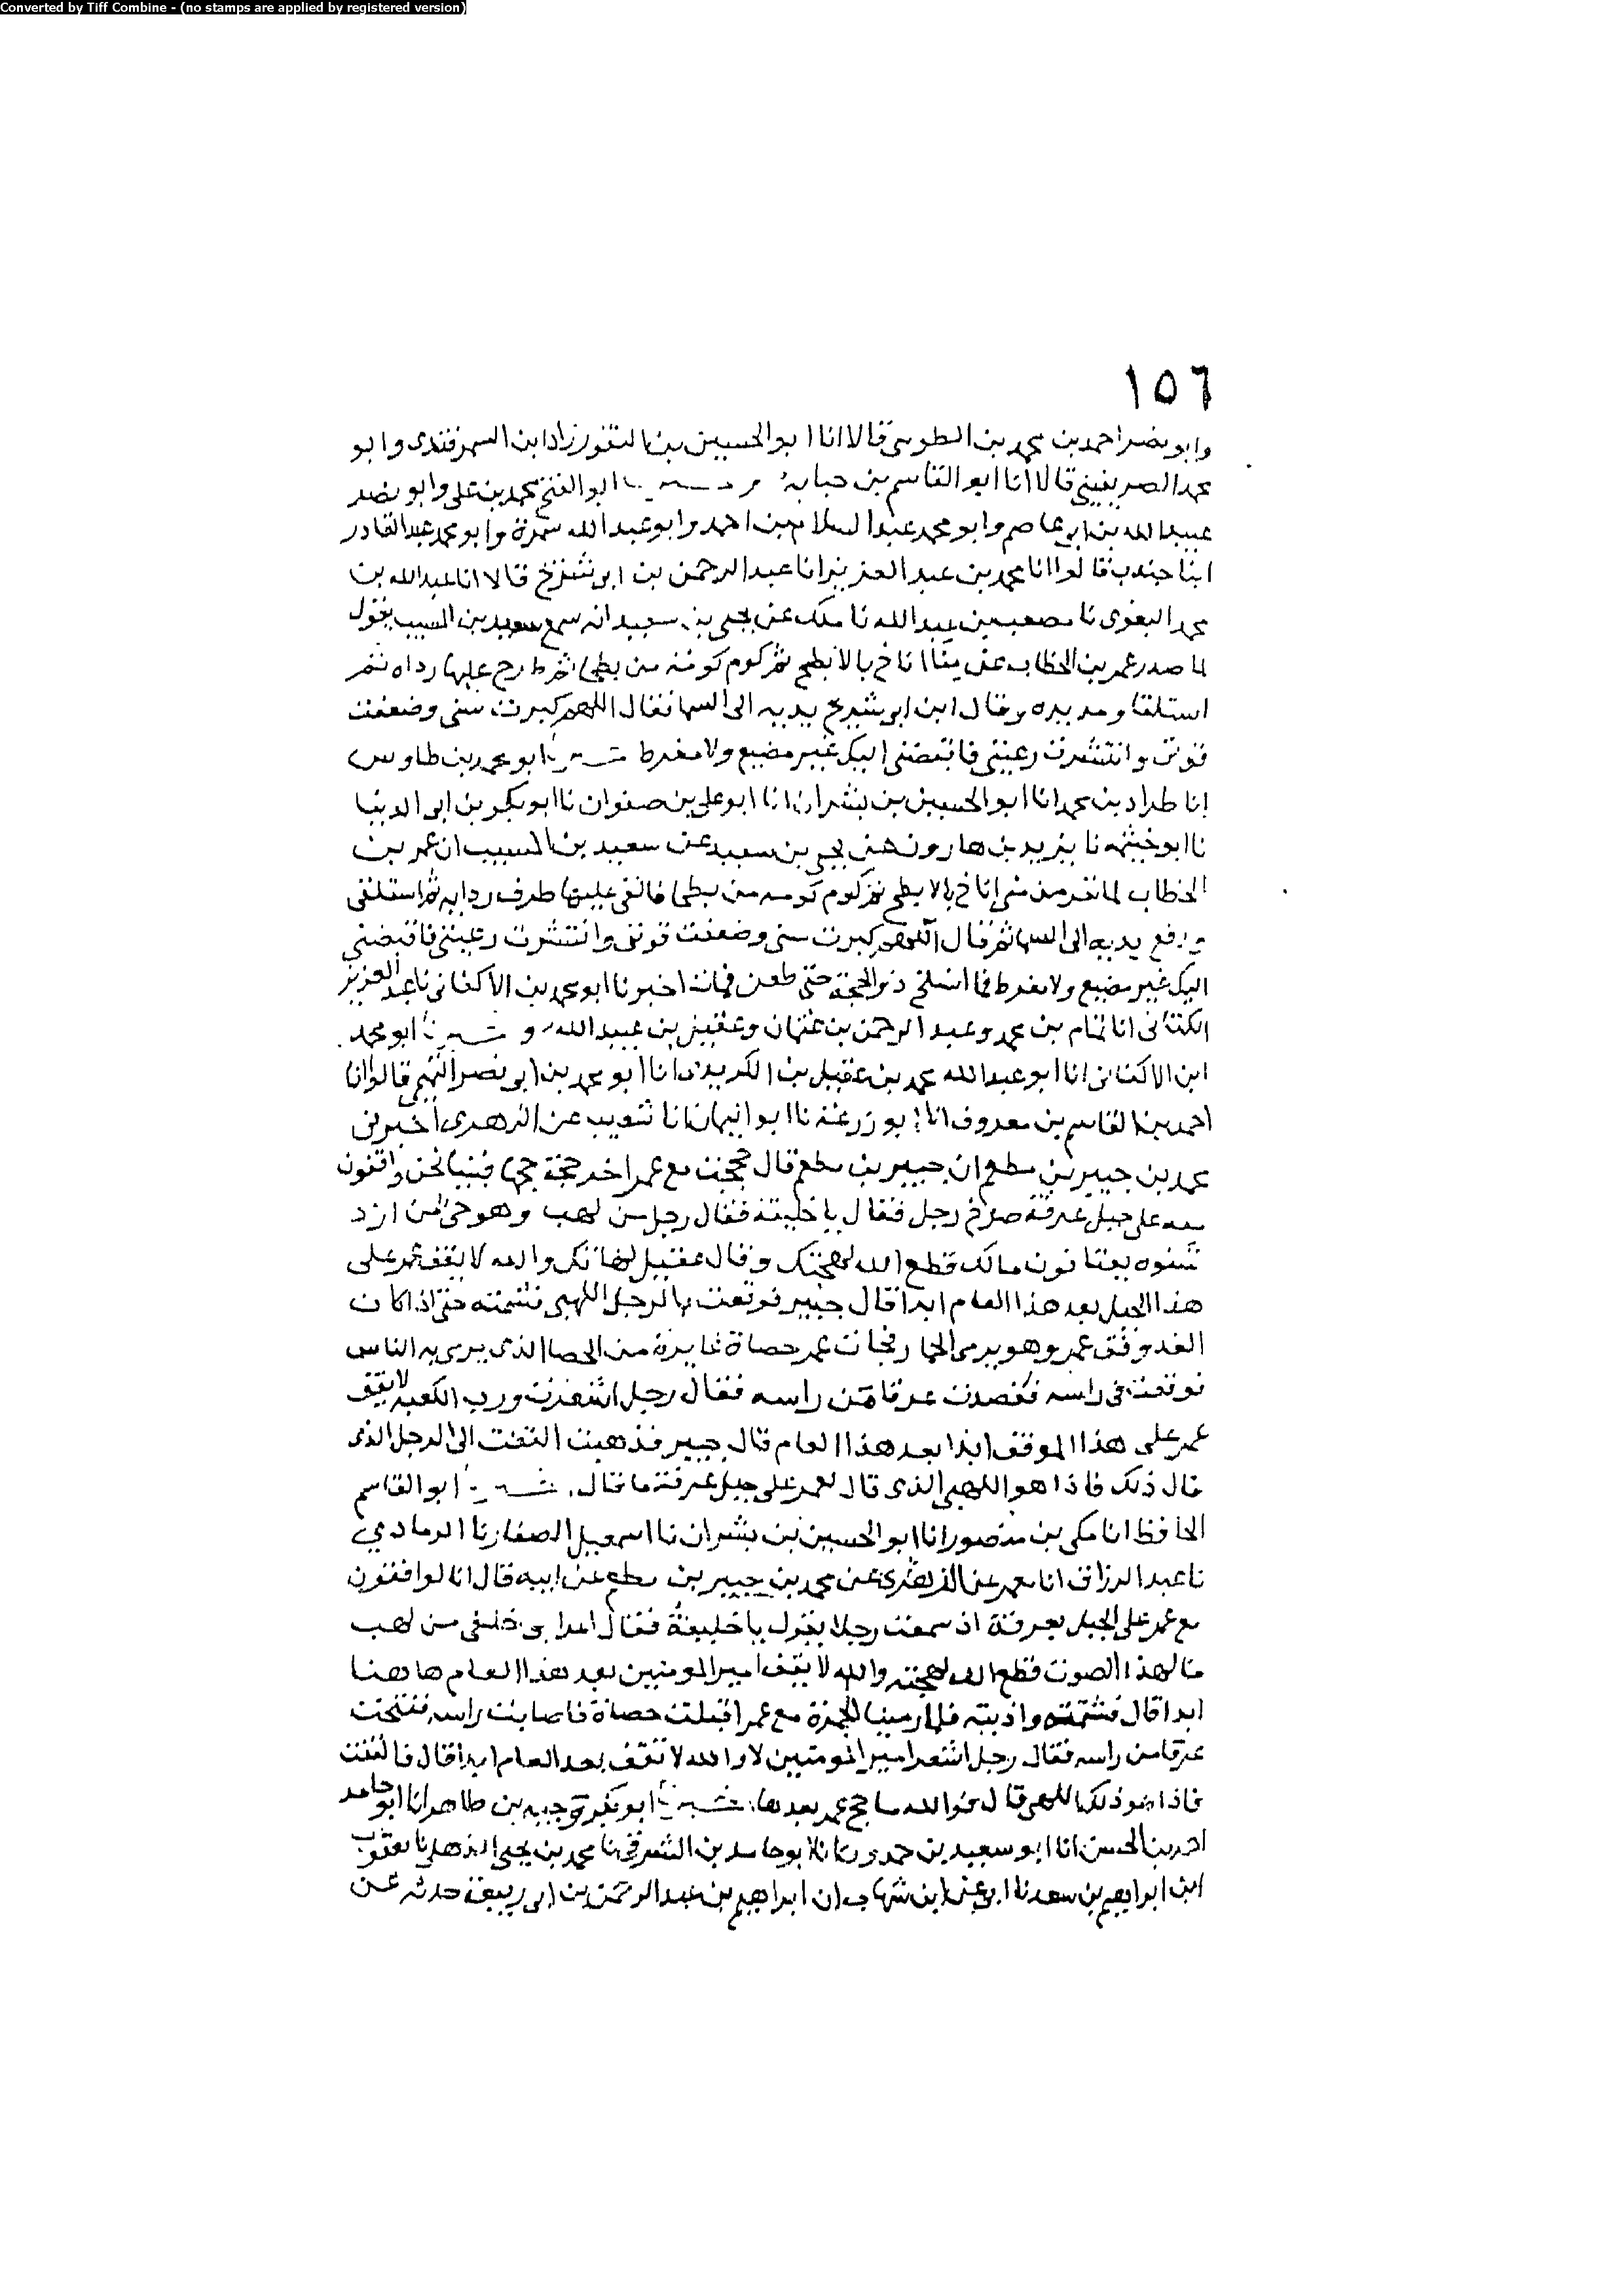 Converted by Tiff Combine - (no stamps are applied by registered version)
١٥٦
وابو نصر احمد بن محمد بن الطوسي قالا انا ابو الحسين بن النقور زاد ابن السمرقندي وابو
محمد الصريفيني قالا انا ابو القاسم بن حبابة ابو الفتح محمد بن علي وابو نصر
عبيد الله بن ابي عاصم وابو محمد عبد السلام بن احمد وابو عبد الله سمرة وابو محمد عبد القادر
ابنا جندب قالوا انا محمد بن عبد العزيز انا عبد الرحمن بن ابي شريح قالا انا عبد الله بن
محمد البغوي نا مصعب بن عبد الله نا ملك عن يحيى بن سعيد انه سمع سعيد بن المسيب يقول
لما صدر عمر بن الخطاب عن منا اناخ بالابطح ثم كوم كومة من بطحا ثم طرح عليها رداه ثم
استلقا ومد يده وقال ابن ابي شريح يديه الى السما فقال اللهم كبرت سني وضعفت
قوتي وانتشرت رعيتي فاقبضني اليك غير مضيع ولا مفرط ابو محمد بن طاوس
انا طراد بن محمد انا ابو الحسين بن بشران انا ابو علي بن صفوان نا ابو بكر بن ابي الدنيا
نا ابو خيثمه نا يزيد بن هارون عن يحيى بن سعيد عن سعيد بن المسيب ان عمر بن
الخطاب لما نفر من منى اناخ بالابطح ثم كوم كومه من بطحا فالقى عليها طرف ردايه ثم استلقى
ورفع يديه الى السما ثم قال اللهم كبرت سني وضعفت قوتي وانتشرت رعيتي فاقبضني
اليك غير مضيع ولا مفرط فما انسلخ ذو الحجة حتى طعن فمات اخبرنا ابو محمد بن الاكفاني نا عبد العزيز
الكتاني انا تمام بن محمد وعبد الرحمن بن عثمان وعقيل بن عبيد الله و ابو محمد
ابن الاكفاني انا ابو عبد الله محمد بن عقيل بن الكريدي انا ابو محمد بن ابي نصر التميمي قالوا انا
احمد بن القاسم بن معروف انا ابو زرعة نا ابو اليمان انا شعيب عن الزهري اخبرني
محمد بن جبير بن مطعم ان جبير بن مطعم قال حججت مع عمر اخر حجة حجها فبينا نحن واقفون
معه على جبل عرفة صرخ رجل فقال يا خليفة فقال رجل من لهب وهو حي من ازد
شنوه يعتافون مالك قطع الله لهجتك وقال عقيل لهاتك والله لا يقف عمر على
هذا الجبل بعد هذا العام ابدا قال جبير فوقعت بالرجل اللهبي فشتمته حتى اذا كان
الغد وقف عمر وهو يرمي الجمار فجات عمر حصاة غايرة من الحصا الذي يرمي به الناس
فوقعت في راسه ففصدت عرقا من راسه فقال رجل اشعرت ورب الكعبه لا يقف
عمر على هذا الموقف ابدا بعد هذا العام قال جبير فذهبت التفت الى الرجل الذي
قال ذلك فاذا هو اللهبي الذي قال لعمر على جبل عرفة ما قال. ابو القاسم
الحافظ انا مكي بن منصور انا ابو الحسين بن بشران نا اسمعيل الصفار نا الرمادي
نا عبد الرزاق انا معمر عن الزهري عن محمد بن جبير بن مطعم عن ابيه قال انا لواقفون
مع عمر على الجبل بعرفة اذ سمعت رجلا يقول يا خليفة فقال اعرابي خلفي من لهب
ما لهذا الصوت قطع الله لهجته والله لا يقف امير المومنين بعد هذا العام هاهنا
ابدا قال فشتمته واذيته فلما رمينا الجمرة مع عمر اقبلت حصاة فاصابت راسه ففتحت
عرقا من راسه فقال رجل اشعر امير المومنين لا والله لا تقف بعد العام ابدا قال فالتفت
فاذا هو ذلك اللهبي قال فوالله ما حج عمر بعدها. ابو بكر وجيه بن طاهر انا ابو حامد
احمد بن الحسن انا ابو سعيد بن حمدون انا ابو حامد بن الشرقي نا محمد بن يحيى الذهلي نا يعقوب
ابن ابراهيم بن سعد نا ابي عن ابن شهاب ان ابراهيم بن عبد الرحمن بن ابي ربيعة حدثه عن